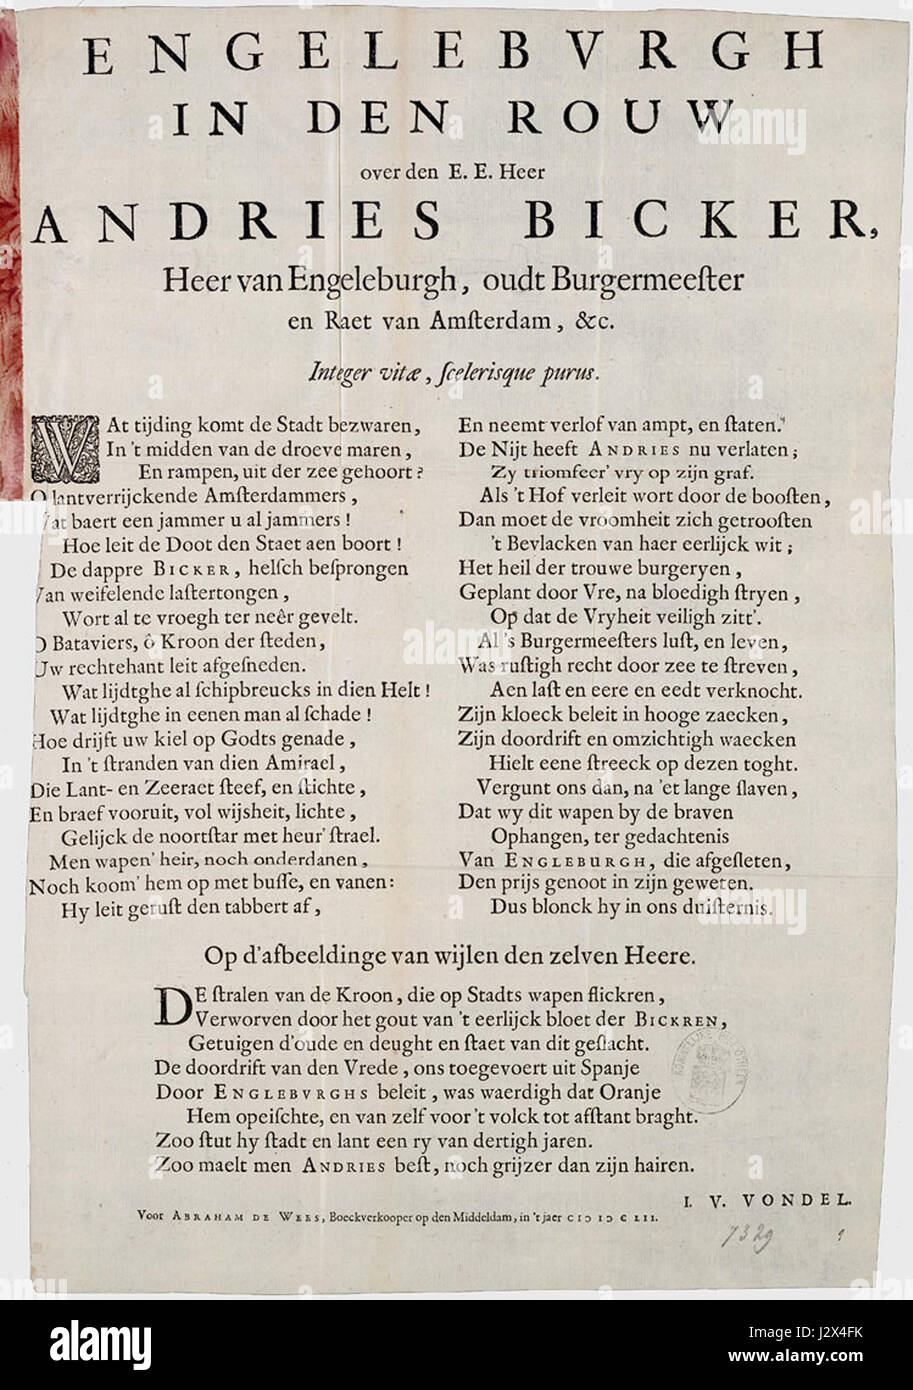 ENGELEBVRGH
IN DEN ROUW
over den E. E. Heer
ANDRIES BICKER,
Heer van Engeleburgh, oudt Burgermeeſter
en Raet van Amſterdam, &c.
Integer vitæ, ſcelerisque purus.
WAt tijding komt de Stadt bezwaren,
In 't midden van de droeve maren,
En rampen, uit der zee gehoort?
O lantverrijckende Amſterdammers,
Wat baert een jammer u al jammers!
Hoe leit de Doot den Staet aen boort!
De dappre BICKER, helſch beſprongen
Van weifelende laſtertongen,
Wort al te vroegh ter neêr gevelt.
O Bataviers, ô Kroon der ſteden,
Uw rechtehant leit afgeſneden.
Wat lijdtghe al ſchipbreucks in dien Helt!
Wat lijdtghe in eenen man al ſchade!
Hoe drijft uw kiel op Godts genade,
In 't ſtranden van dien Amirael,
Die Lant- en Zeeraet ſteef, en ſtichte,
En braef vooruit, vol wijsheit, lichte,
Gelijck de noortſtar met heur' ſtrael.
Men wapen' heir, noch onderdanen,
Noch koom' hem op met buſſe, en vanen:
Hy leit geruſt den tabbert af,
En neemt verlof van ampt, en ſtaten.
De Nijt heeft ANDRIES nu verlaten;
Zy triomfeer' vry op zijn graf.
Als 't Hof verleit wort door de booſten,
Dan moet de vroomheit zich getrooſten
't Bevlacken van haer eerlijck wit;
Het heil der trouwe burgeryen,
Geplant door Vre, na bloedigh ſtryen,
Op dat de Vryheit veiligh zitt'.
Al 's Burgermeeſters luſt, en leven,
Was ruſtigh recht door zee te ſtreven,
Aen laſt en eere en eedt verknocht.
Zijn kloeck beleit in hooge zaecken,
Zijn doordrift en omzichtigh waecken
Hielt eene ſtreeck op dezen toght.
Vergunt ons dan, na 'et lange ſlaven,
Dat wy dit wapen by de braven
Ophangen, ter gedachtenis
Van ENGLEBURGH, die afgeſleten,
Den prijs genoot in zijn geweten.
Dus blonck hy in ons duiſternis.
Op d'afbeeldinge van wijlen den zelven Heere.
DE ſtralen van de Kroon, die op Stadts wapen flickren,
Verworven door het gout van 't eerlijck bloet der BICKREN,
Getuigen d'oude en deught en ſtaet van dit geſlacht.
De doordrift van den Vrede, ons toegevoert uit Spanje
Door ENGLEBVRGHS beleit, was waerdigh dat Oranje
Hem opeiſchte, en van zelf voor 't volck tot afſtant braght.
Zoo ſtut hy ſtadt en lant een ry van dertigh jaren.
Zoo maelt men ANDRIES beſt, noch grijzer dan zijn hairen.
I. V. VONDEL.
Voor ABRAHAM DE WEES, Boeckverkooper op den Middeldam, in 't jaer CIↃ IↃ C LII.
7329
alamy
Image ID: J2X4FK
www.alamy.com